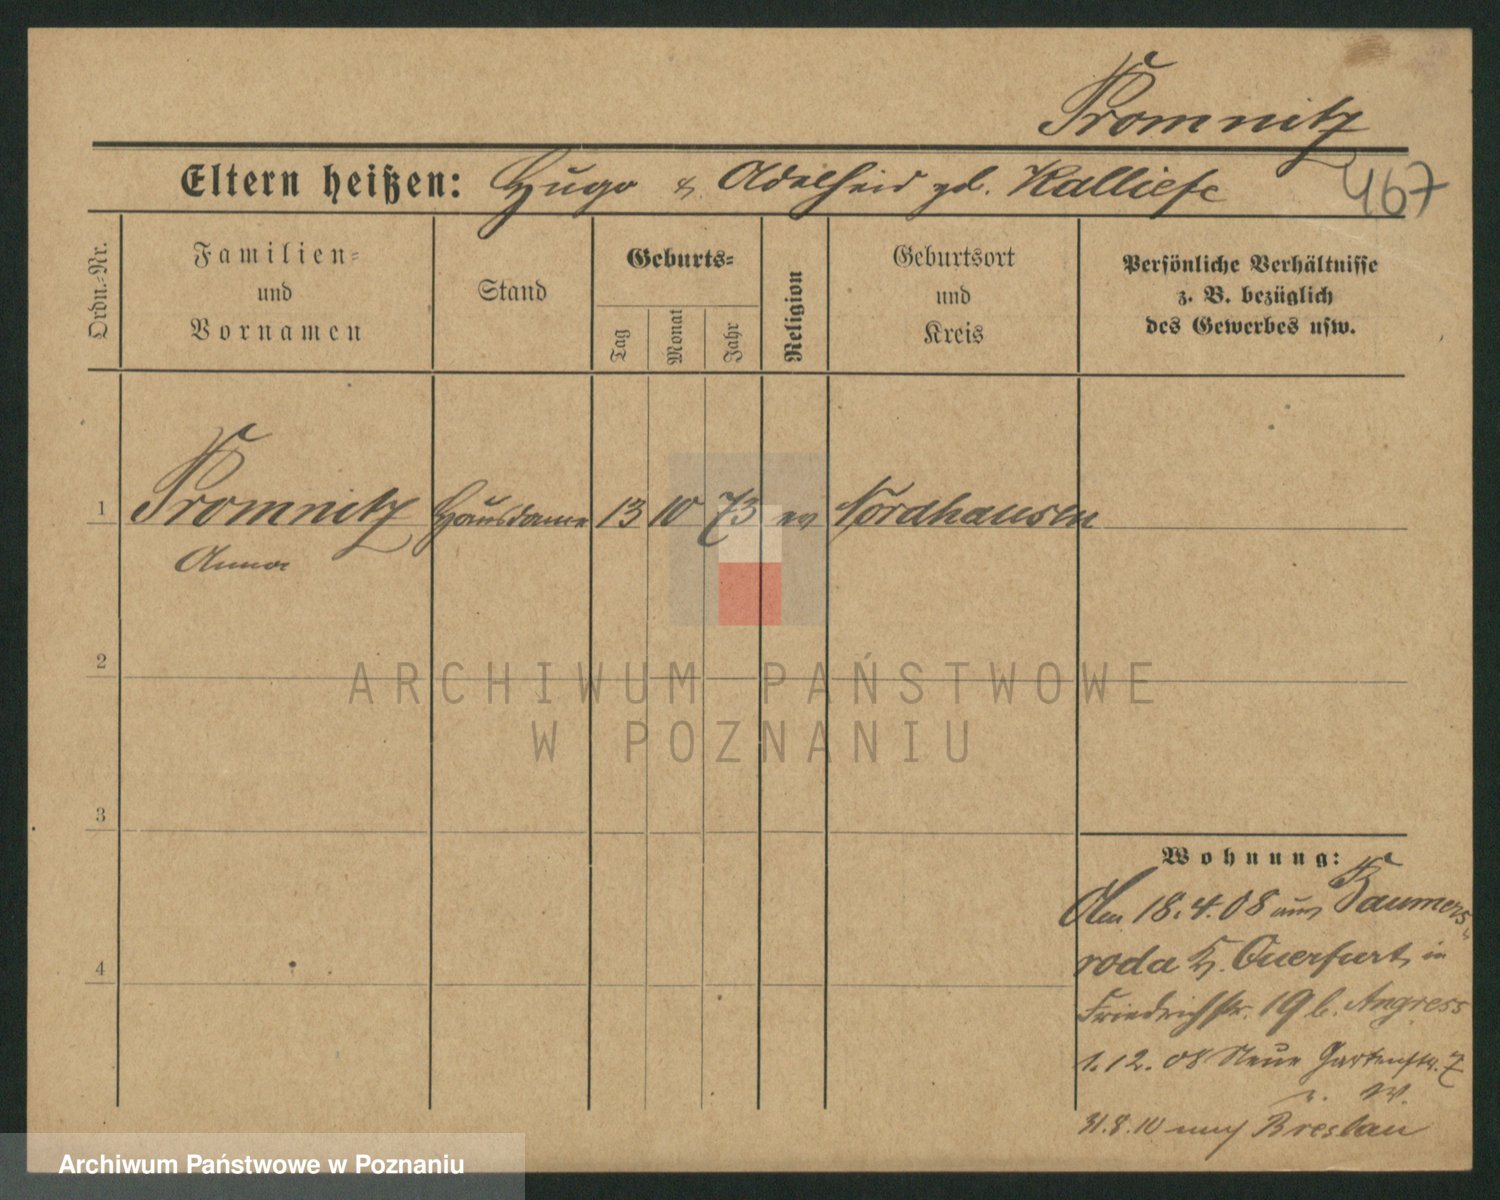 Promnitz
Eltern heißen: Hugo & Adelheid geb. Kalliefe
467
Ordn.-Nr.
Familien-
und
Vornamen
Stand
Geburts-
Tag
Monat
Jahr
Religion
Geburtsort
und
Kreis
Persönliche Verhältnisse
z. B. bezüglich
des Gewerbes usw.
1 Promnitz Hausdame 13 10 73 ev Nordhausen
Anna
2
ARCHIWUM PAŃSTWOWE
W POZNANIU
3
4
Wohnung:
18.4.08 aus Baumers-
roda K. Querfurt in
Friedrichstr. 19 b. Angress
1.12.08 Neue Gartenstr. 7
31.8.10 nach Breslau
Archiwum Państwowe w Poznaniu